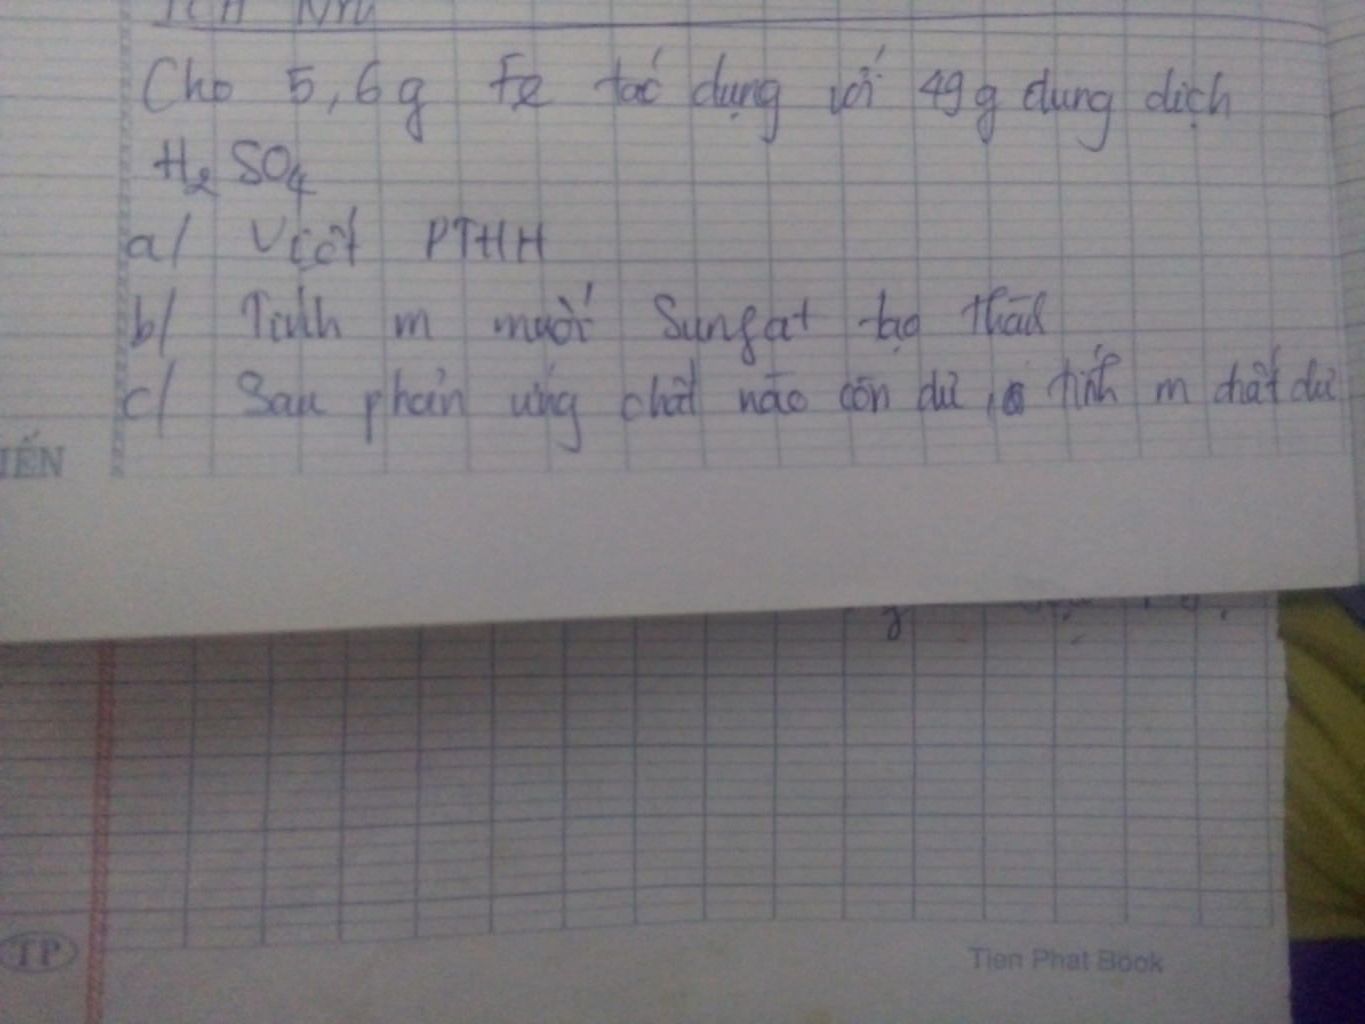 Cho 5,6g Fe tác dụng với 49g dung dịch
H₂SO₄
a/ Viết PTHH
b/ Tính m muối Sunfat tạo thành
c/ Sau phản ứng chất nào còn dư, tính m chất dư
IẾN
TP
Tien Phat Book